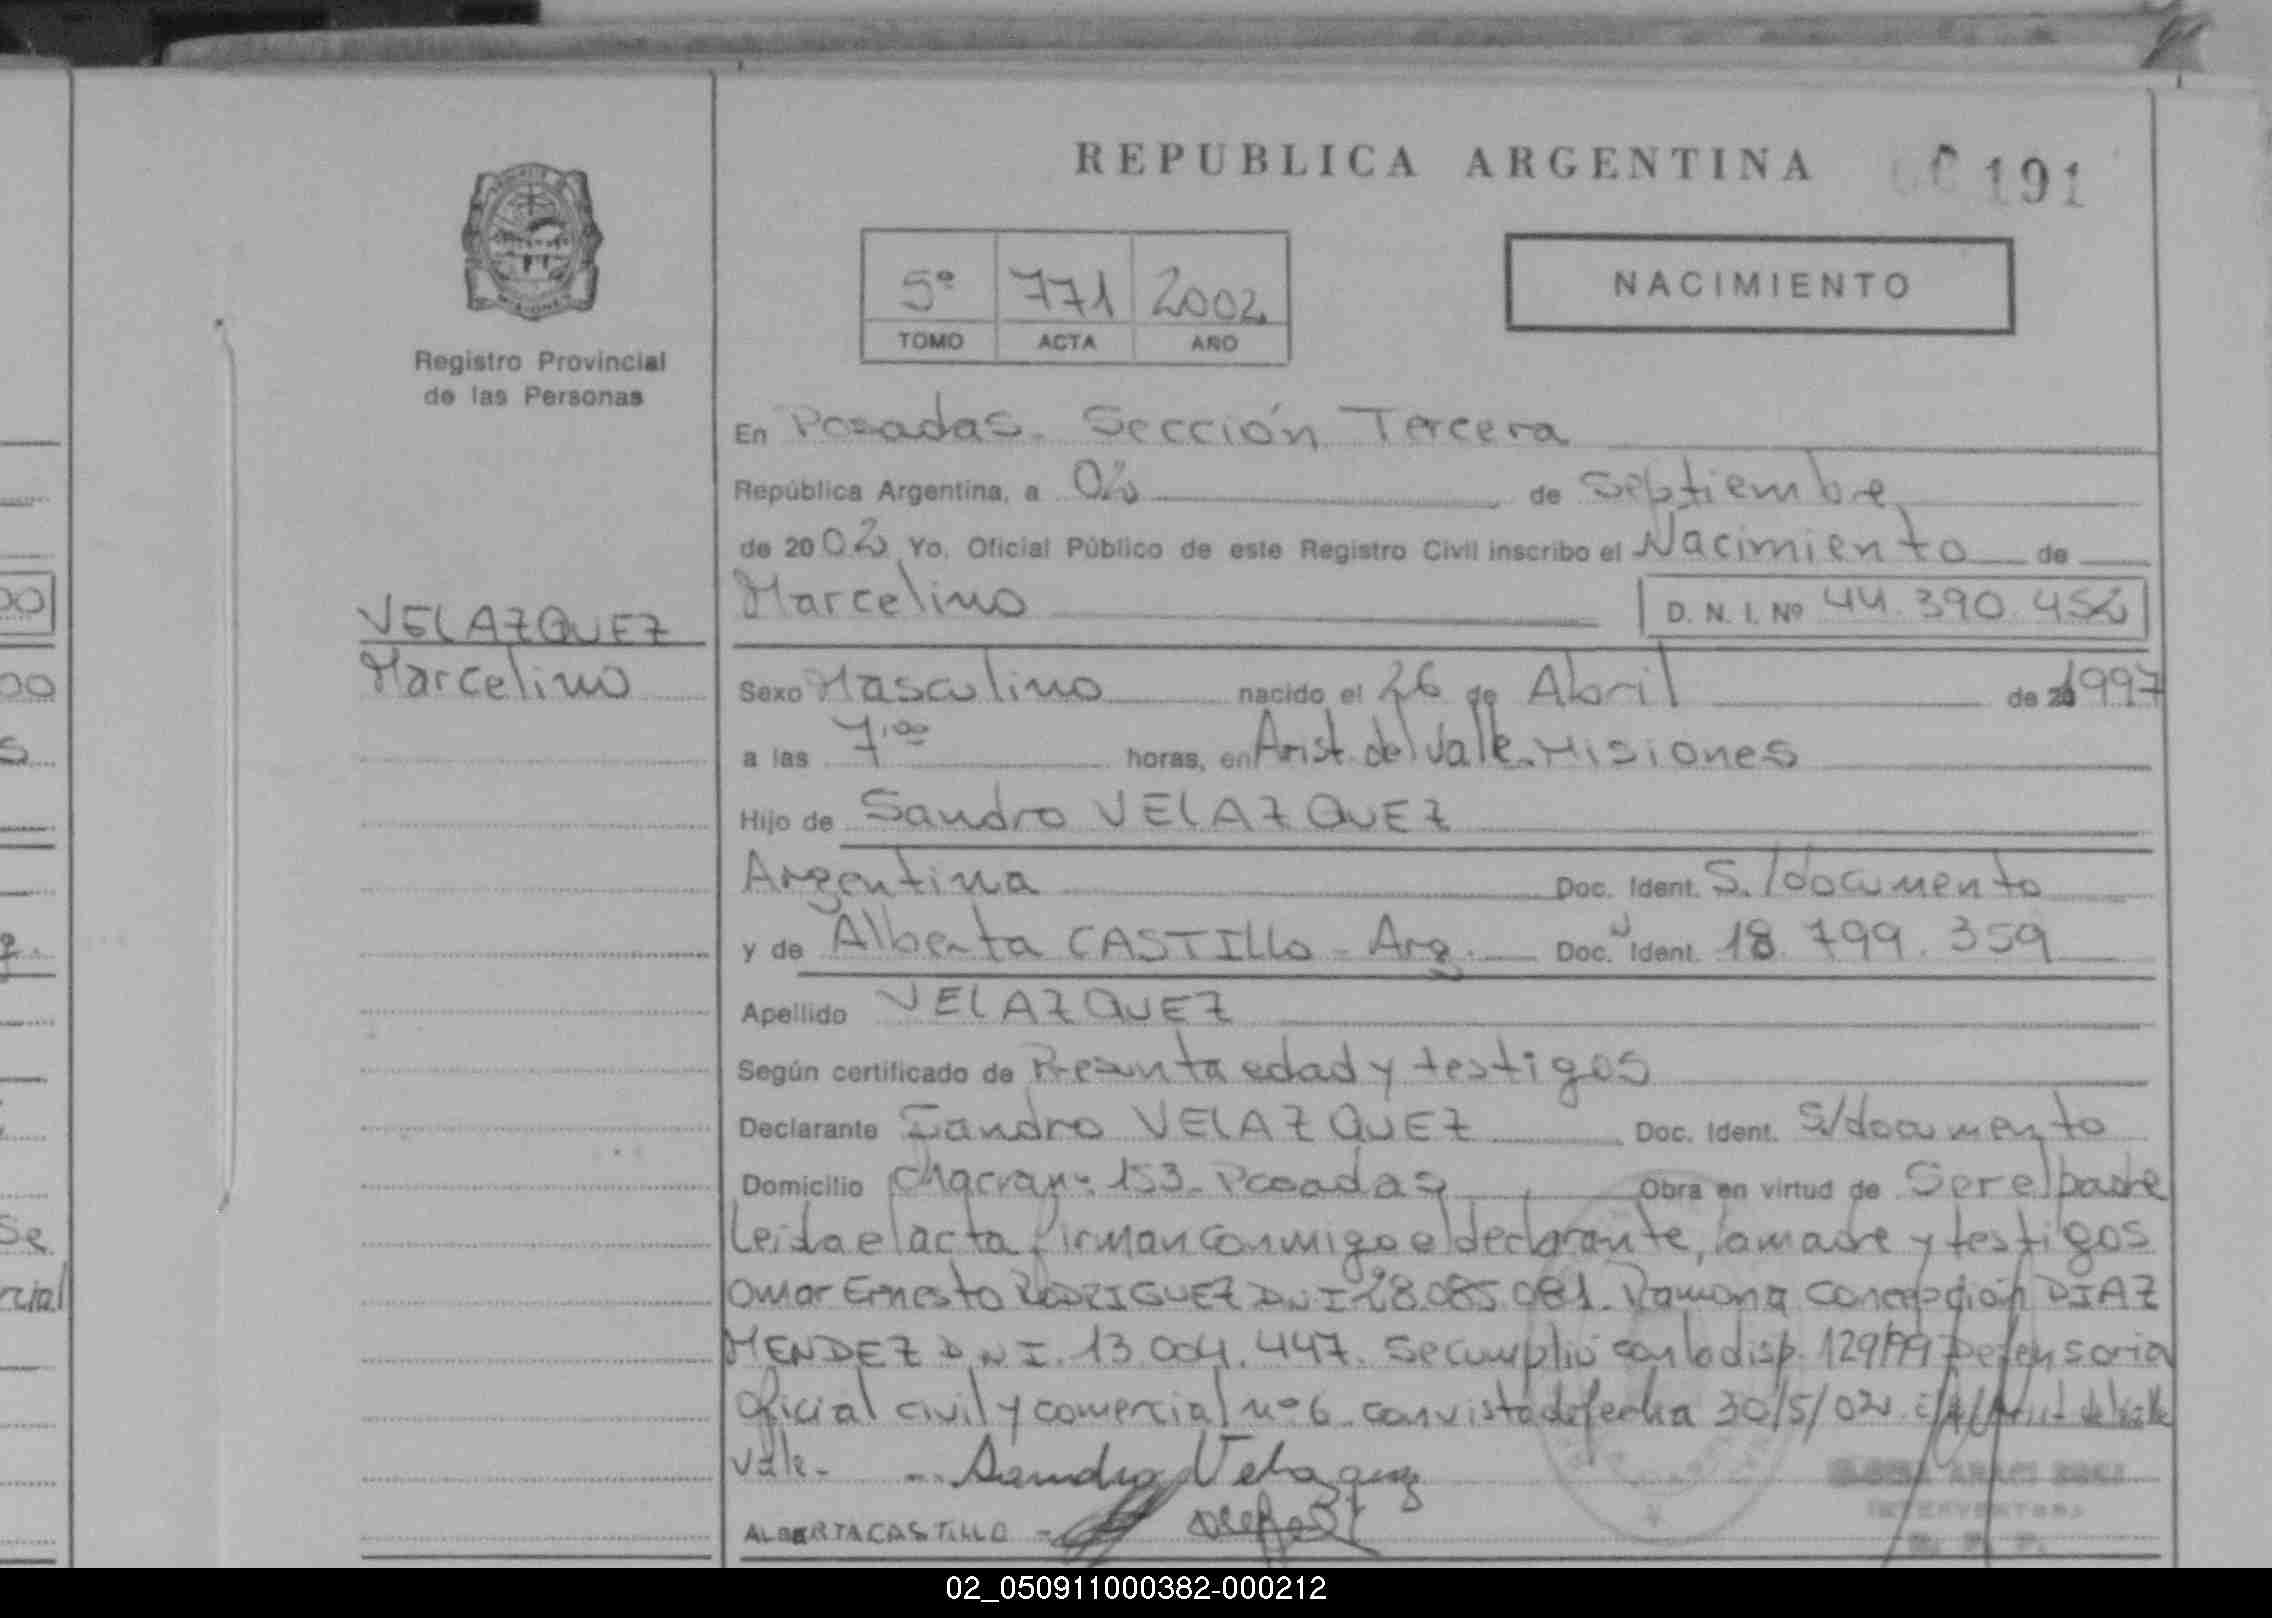 REPUBLICA ARGENTINA
191
5º 771 2002
TOMO ACTA AÑO
NACIMIENTO
Registro Provincial
de las Personas
En Posadas. Sección Tercera
República Argentina, a 02 de Septiembre
de 2002 Yo, Oficial Público de este Registro Civil inscribo el Nacimiento de
Marcelino D. N. I. Nº 44.390.452
VELAZQUEZ
Marcelino
Sexo Masculino nacido el 26 de Abril de 1997
a las 7,00 horas, en Arist. del Valle. Misiones
Hijo de Sandro VELAZQUEZ
Argentina Doc. Ident. S./documento
y de Alberta CASTILLO - Arg. Doc. Ident. 18.799.359
Apellido VELAZQUEZ
Según certificado de Presunta edad y testigos
Declarante Sandro VELAZQUEZ Doc. Ident. S/documento
Domicilio Chacra nº 153. Posadas Obra en virtud de Ser el padre
Leida el acta firman conmigo el declarante, la madre y testigos
Omar Ernesto RODRIGUEZ DNI 28.085.081. Ramona Concepción DIAZ
MENDEZ DNI. 13.004.447. Se cumplió con la disp. 129/99 Defensoria
Oficial civil y comercial nº 6. con vista de fecha 30/5/02. Arist. del Valle
Vale. Sandro Velazquez
ALBERTA CASTILLO
INTERVENTORA
R. P. P.
02_050911000382-000212